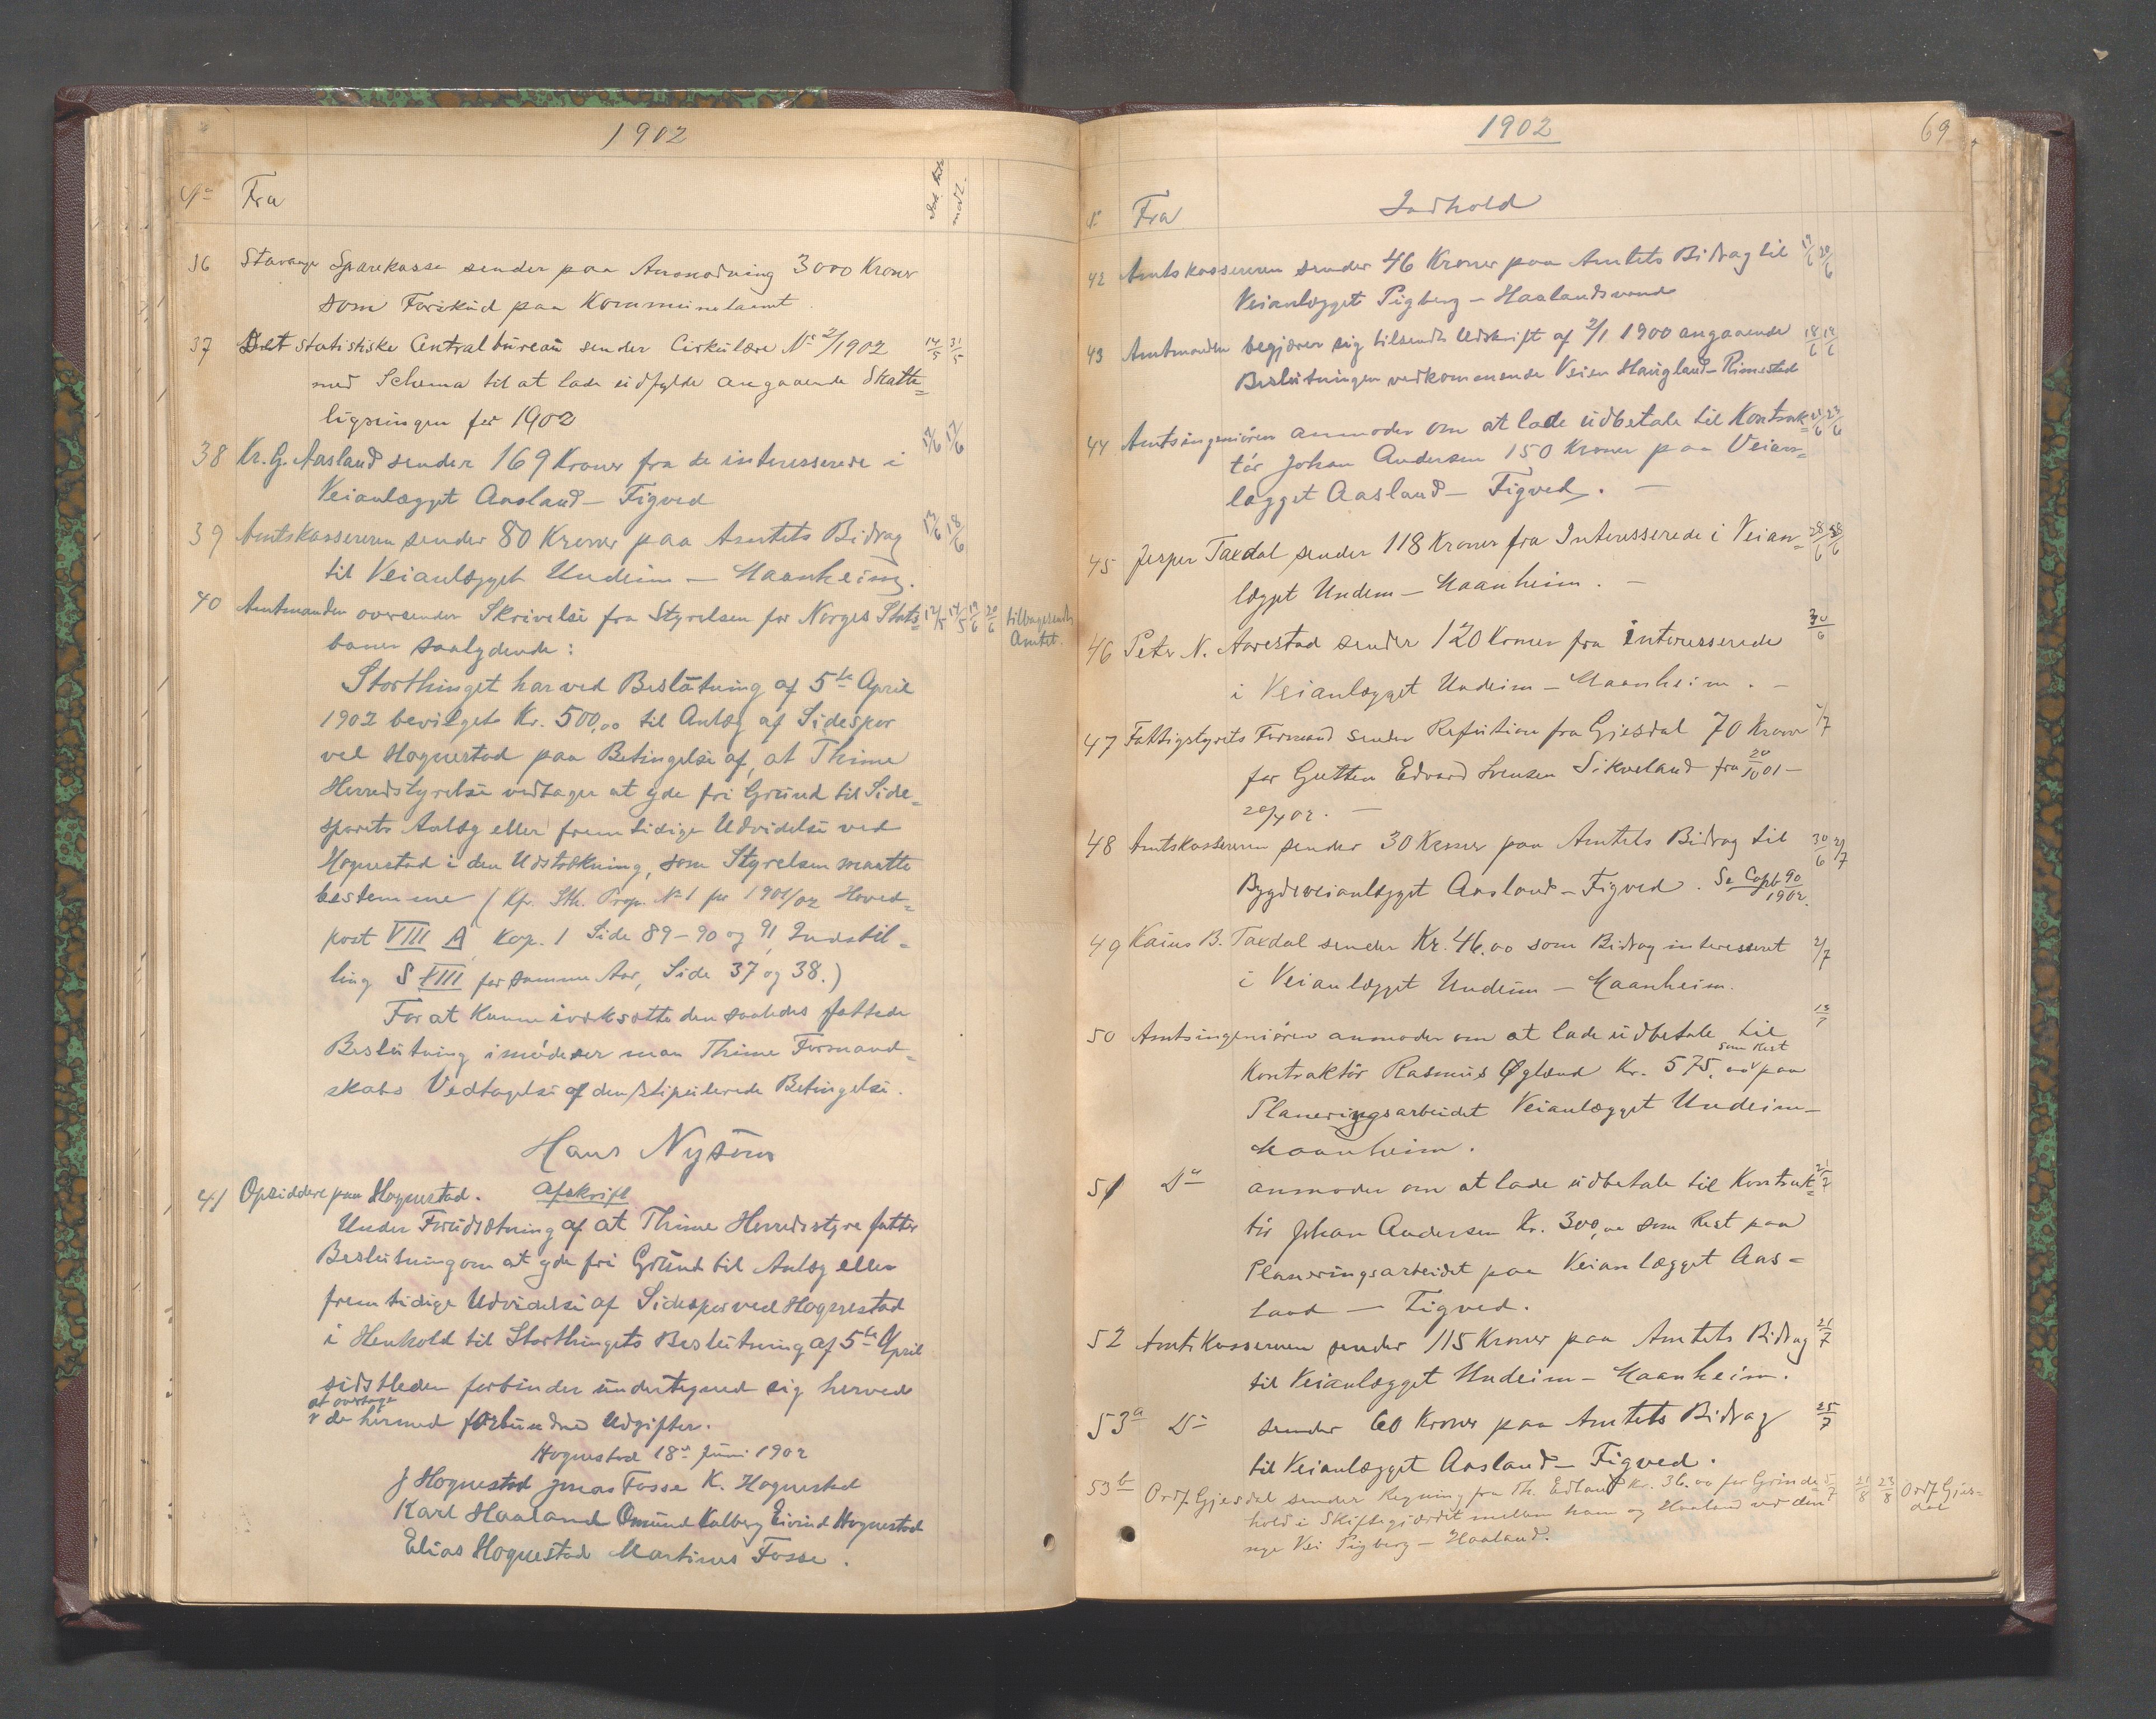 1902
No Fra
36 Stavanger Sparekasse sender paa Anmodning 3000 Kroner
som Forskud paa Kommunelaant
37 Det statistiske Centralbureau sender Cirkulære No 2/1902 14/5 31/5
med Schema til at lade udfylde angaaende Skatte=
ligningen for 1902
38 Kr. G. Aasland sender 169 Kroner fra de interesserede i 17/6 17/6
Veianlægget Aasland – Figved
39 Amtskassereren sender 80 Kroner paa Amtets Bidrag 13/6 18/6
til Veianlægget Undeim – Maanheim.
40 Amtmanden oversender Skrivelse fra Styrelsen for Norges Stats= 12/5 14/5 19/6 20/6 tilbagesendt
baner saalydende: Amtet.
Storthinget har ved Beslutning af 5te April
1902 bevilget Kr. 500,00 til Anlæg af Sidespor
ved Hognestad paa Betingelse af, at Thime
Herredstyrelse vedtager at yde fri Grund til Side=
sporets Anlæg eller fremtidige Udvidelse ved
Hognestad i den Udstrækning, som Styrelsen maatte
bestemme (Kfr. Sth. Prop. No 1 for 1901/02 Hoved=
post VIII A Kap. 1 Side 89–90 og 91, Indstil=
ling S XIII for samme Aar, Side 37 og 38.)
For at kunne iværksætte den saaledes fattede
Beslutning imødeser man Thime Formand=
skabs Vedtagelse af den stipulerede Betingelse.
Hans Nysöm
41 Opsiddere paa Hognestad. Afskrift
Under Forudsætning af at Thime Herredsstyre fatter
Beslutning om at yde fri Grund til Anlæg eller
fremtidige Udvidelse af Sidespor ved Hognestad
i Henhold til Storthingets Beslutning af 5te April
sidstleden forbinder undertegnede sig herved
at overtage
v de hermed forbundne Udgifter.
Hognestad 18de Juni 1902
J Hognestad Jonas Fosse K. Hognestad
Karl Haaland Omund Kalberg Eivind Hognestad
Elias Hognestad Martinus Fosse.
1902 69
Fra Indhold
42 Amtskassereren sender 46 Kroner paa Amtets Bidrag til 19/6 20/6
Veianlægget Pigberg – Haalandsvand
43 Amtmanden begjærer sig tilsendt Udskrift af 2/1 1900 angaaende 18/6 19/6
Beslutningen vedkommende Veien Haugland–Rimestad
44 Amtsingeniören anmoder om at lade udbetale til Kontrak=
tör Johan Andersen 150 Kroner paa Veian=
lægget Aasland – Figved. –
45 Jesper Taxdal sender 118 Kroner fra Interesserede i Veian= 28/6 28/6
lægget Undem – Maanheim. –
46 Peter N. Aarestad sender 120 Kroner fra interesserede 30/6
i Veianlægget Undeim – Maanheim. –
47 Fattigstyrets Formand sender Refution fra Gjesdal 70 Kroner 1/7
for Gutten Edvard Svensen Sikveland fra 20/10 01 –
20/4 02. –
48 Amtskassereren sender 30 Kroner paa Amtets Bidrag til 30/6 2/7
Bygdeveianlægget Aasland – Figved. Se Copb 90/1902.
49 Kaius B. Taxdal sender Kr. 46.00 som Bidrag interesseret 2/7
i Veianlægget Undeim – Maanheim.
50 Amtsingeniören anmoder om at lade udbetale til 12/7
som Rest
Kontraktör Rasmus Øglænd Kr. 575,00 v paa
Planeringsarbeidet Veianlægget Undeim –
Maanheim.
51 Do anmoder om at lade udbetale til Kontrak=
tör Johan Andersen Kr. 300,00 som Rest paa
Planeringsarbeidet paa Veianlægget Aas=
land – Figved.
52 Amtskassereren sender 115 Kroner paa Amtets Bidrag 21/7
til Veianlægget Undeim – Maanheim.
53a Do sender 60 Kroner paa Amtets Bidrag 25/7
til Veianlægget Aasland – Figved.
53b Ordf. Gjesdal sender Regning fra Th. Edland Kr. 36.00 for Grinde= 21/8 23/8 Ordf. Gjes=
hold i Skiftegjærdet mellem ham og Haaland ved den dal
nye Vei Pigberg – Haaland.